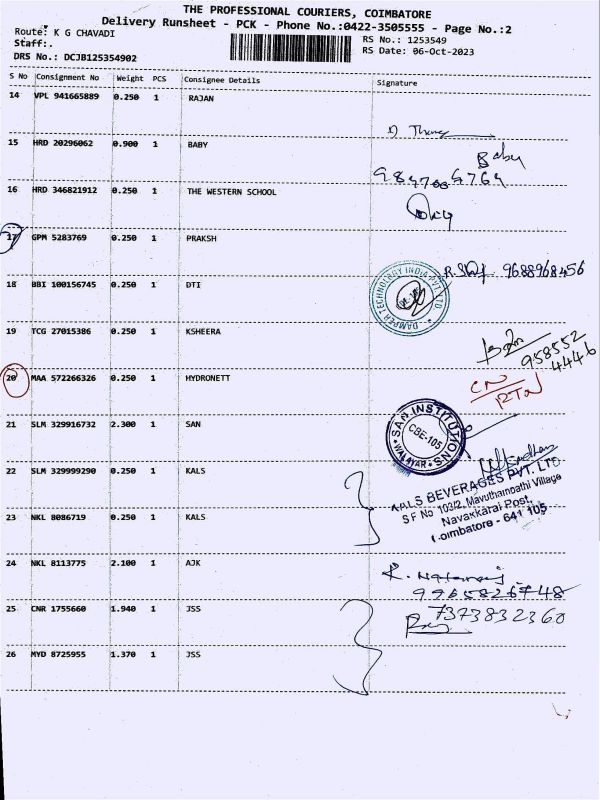 THE PROFESSIONAL COURIERS, COIMBATORE
Delivery Runsheet - PCK - Phone No.:0422-3505555 - Page No.:2
Route: K G CHAVADI
RS No.: 1253549
Staff:.
RS Date: 06-Oct-2023
DRS No.: DCJB125354902
S No Consignment No Weight PCS Consignee Details Signature
14 VPL 941665889 0.250 1 RAJAN
15 HRD 20296062 0.900 1 BABY
Baby
16 HRD 346821912 0.250 1 THE WESTERN SCHOOL
17 GPM 5283769 0.250 1 PRAKSH
9688968456
18 BBI 100156745 0.250 1 DTI
DAMPER TECHNOLOGY INDIA PVT LTD
19 TCG 27015386 0.250 1 KSHEERA
958552
4446
20 MAA 572266326 0.250 1 HYDRONETT
CN
RTN
21 SLM 329916732 2.300 1 SAN
SAN INSTITUTIONS
CBE-105
WALAYAR
22 SLM 329999290 0.250 1 KALS
KALS BEVERAGES PVT. LTD
S F No 103/2, Mavuthampathi Village
Navakkarai Post,
Coimbatore - 641 105
23 NKL 8086719 0.250 1 KALS
24 NKL 8113775 2.100 1 AJK
9965826748
25 CNR 1755660 1.940 1 JSS
7373832360
26 MYD 8725955 1.370 1 JSS